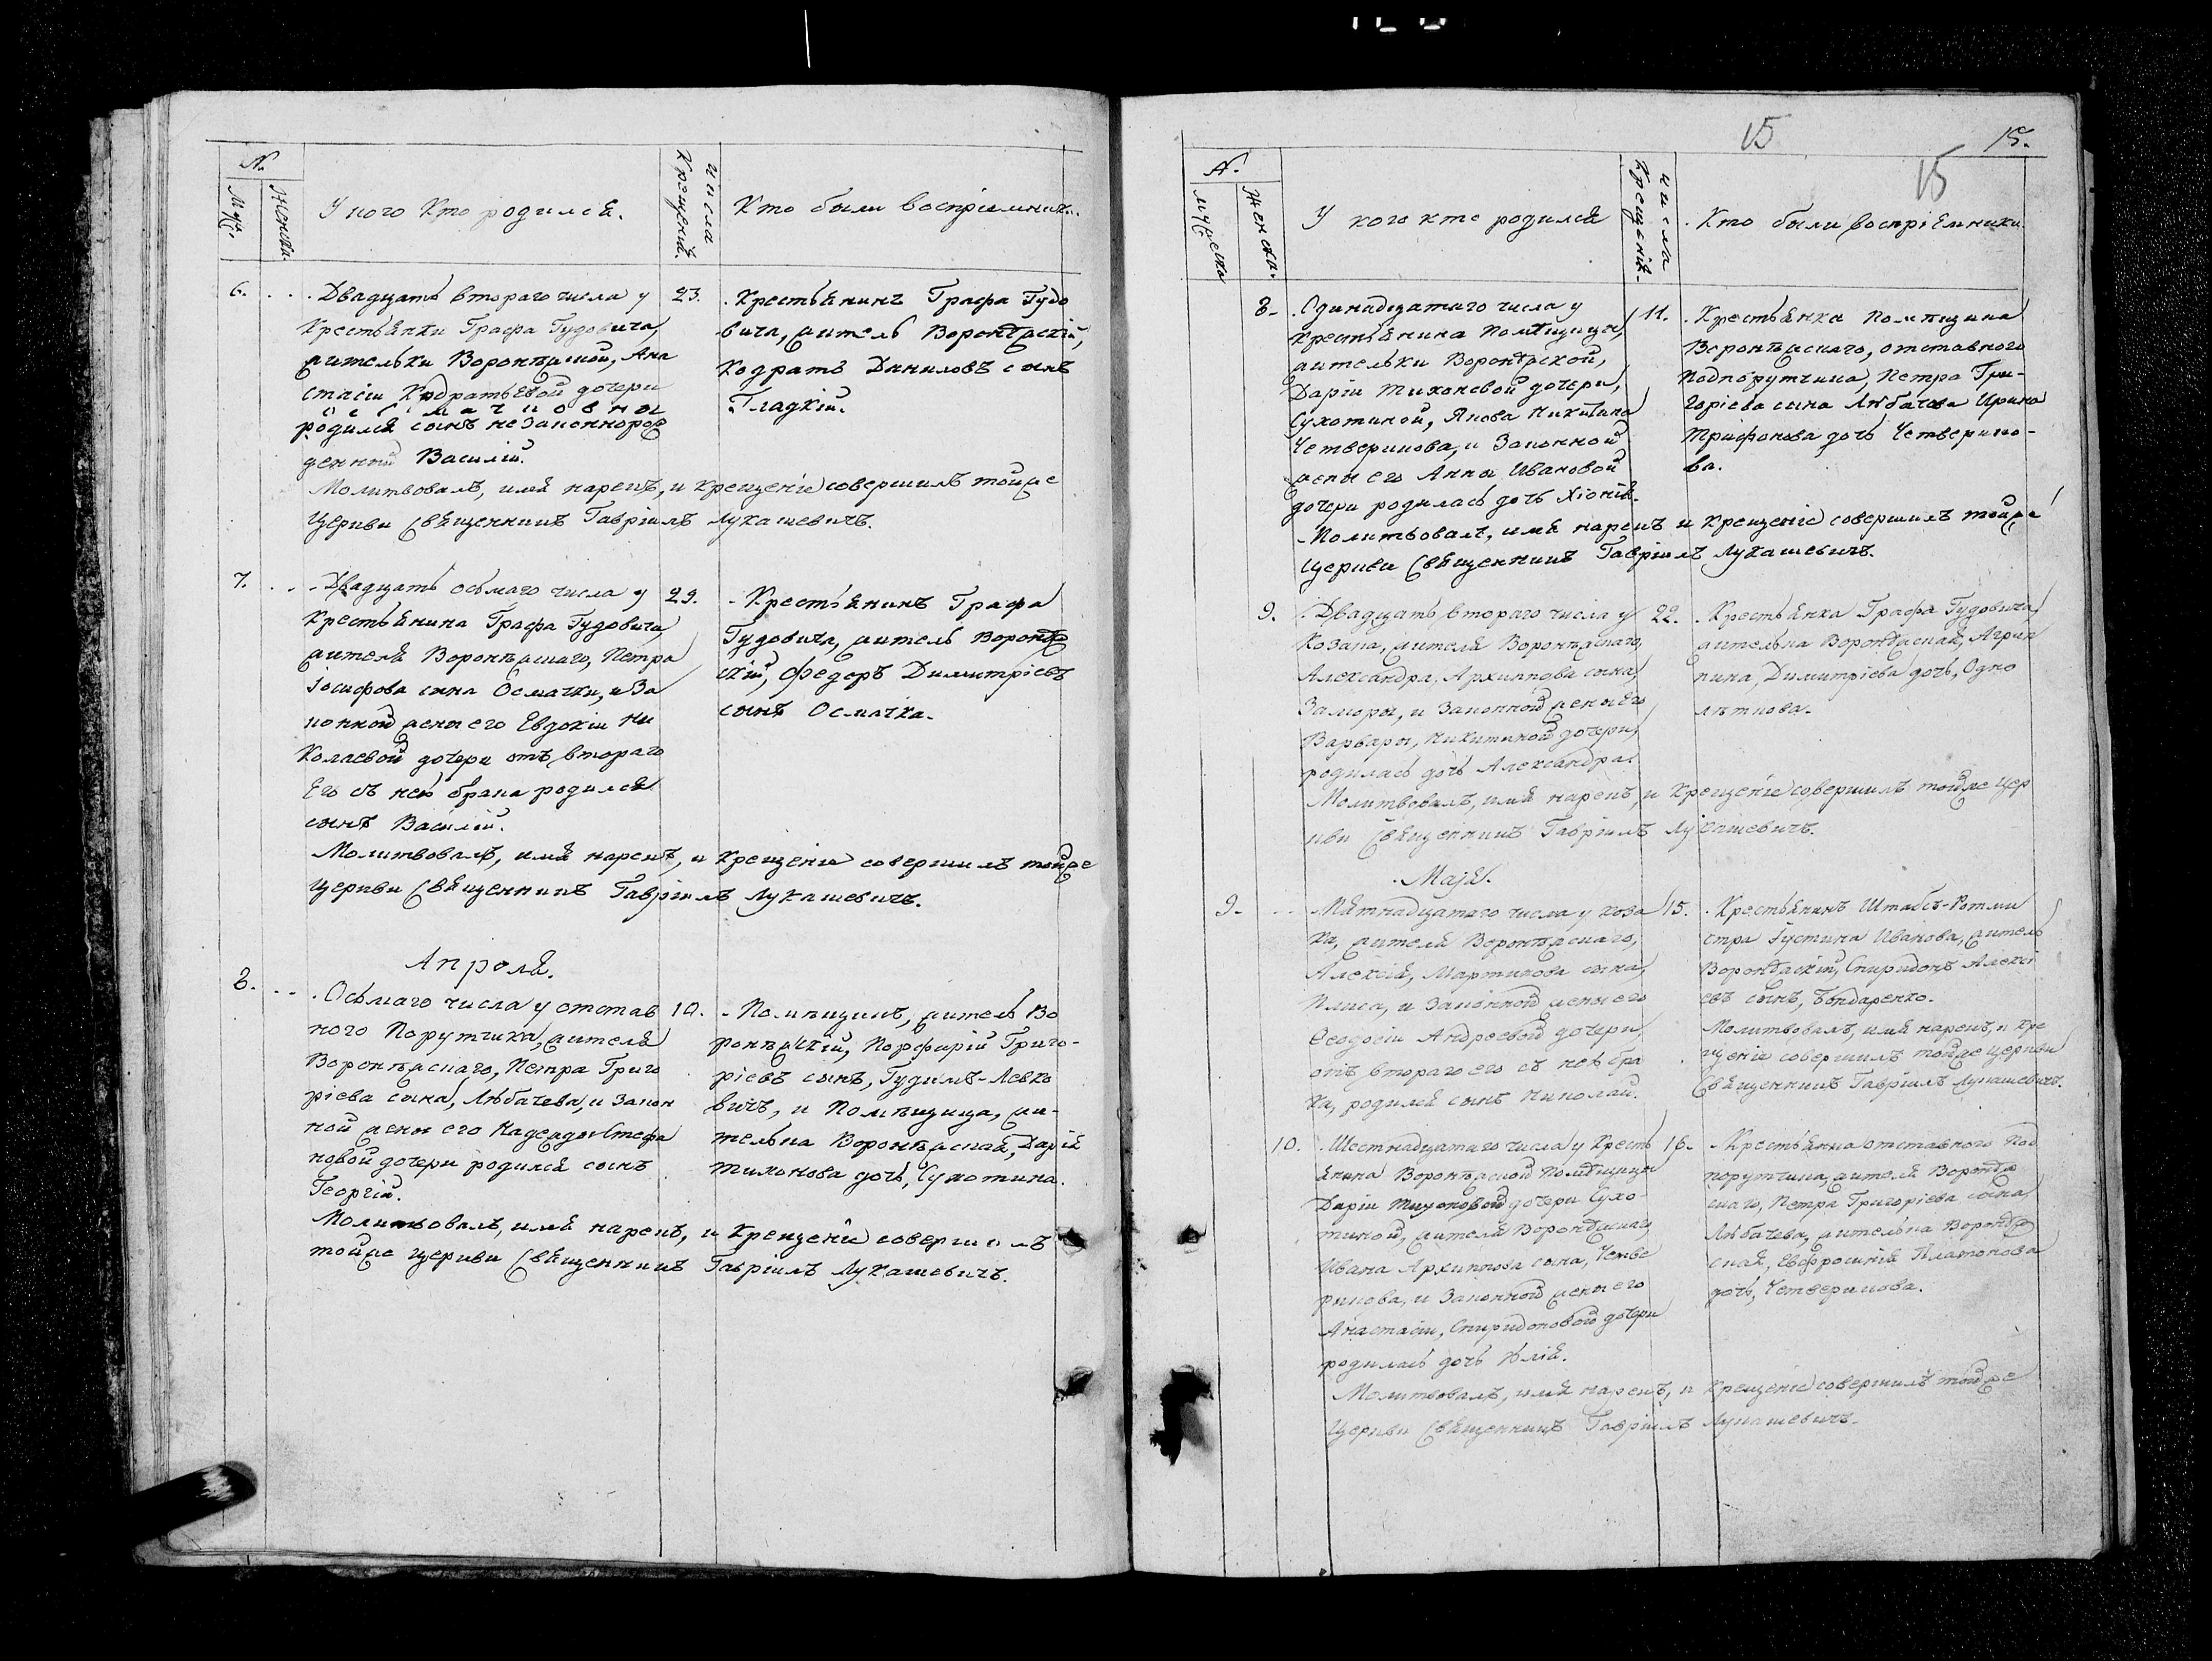 №.
Муж.
Женска.
У кого Кто родился.
числа
Крещенія.
Кто были воспріемник...
6.
Двадцать втораго числа у
Крестьянки Графа Гудовича,
жительки Воронѣжской, Ана
стасіи Кодратьевой дочери
Осмачковны
родился сынъ незаконнорож
денный Василій.
23.
Крестьянинъ Графа Гудо
вича, житель Воронѣжскій,
Кодратъ Даниловъ сынъ
Гладкій.
Молитвовалъ, имя нарекъ, и крещеніе совершилъ тойже
Церкви Священникъ Гавріилъ Лукашевичъ.
7.
Двадцать осьмаго числа у
Крестьянина Графа Гудовича,
жителя Воронѣжскаго, Петра
Іосифова сына Осмачки, и За
конной жены его Евдокіи Ни
колаевой дочери отъ втораго
Его съ ней брака родился
сынъ Василій.
29.
Крестьянинъ Графа
Гудовича, житель Воронѣж
скій, Федоръ Димитріевъ
сынъ Осмачка.
Молитвовалъ, имя нарекъ, и Крещеніе совершилъ тойже
Церкви Священникъ Гавріилъ Лукашевичъ.
Апреля.
8.
Осьмаго числа у отстав
ного Порутчика, жителя
Воронѣжскаго, Петра Григо
ріева сына, Лѣбачева, и Закон
ной жены его Надежды Стефа
новой дочери родился сынъ
Георгій.
10.
Помѣщикъ, житель Во
ронѣжскій, Порфирій Григо-
ріевъ сынъ, Гудимъ-Левко
вичъ, и Помѣщица, жи-
телька Воронѣжская, Дарія
тихонова дочь, Сухотина.
Молитвовалъ, имя нарекъ, и Крещеніе совершилъ
тойже Церкви Священникъ Гавріилъ Лукашевичъ.
15
15.
15
№.
мужеска
Женска.
У кого кто родился
числа
Крещенія.
Кто были воспріемники
8.
Одинадцатаго числа у
крестьянина Помѣщицы,
жительки Воронѣжской,
Даріи Тихоновой дочери,
Сухотиной, Якова Никитина
Четверикова, и Законной
жены его Анны Ивановой
дочери родилась дочь Хіонія.
11.
Крестьянка Помѣщика
Воронѣжскаго, отставного
Подпорутчика, Петра Гри-
горіева сына Лѣбачева Ирина
Трифонова дочь Четверико-
ва.
Молитвовалъ, имя нарекъ и Крещеніе совершилъ тойже
Церкви Священникъ Гавріилъ Лукашевичъ.
9.
Двадцать втораго числа у
Козака, жителя Воронѣжскаго,
Александра Архиппова сына,
Заморы, и Законной жены его
Варвары, Никитиной дочери,
родилась дочь Александра.
22.
Крестьянка Графа Гудовича,
жителька Воронѣжская, Агрип
пина, Димитріева дочь, Одно
лѣткова.
Молитвовалъ, имя нарекъ, и Крещеніе совершилъ тойже Цер
кви Священникъ Гавріилъ Лукашевичъ.
Маja.
9.
Пятнадцатаго числа у коза
ка, жителя Воронѣжскаго,
Алексія, Мартинова сына,
Плиса, и Законной жены его
Феодосіи Андреевой дочери
отъ втораго его съ неѣ бра
ка, родился сынъ Николай.
15.
Крестьянинъ Штабсъ-Ротми
стра Густина Иванова, житель
Воронѣжскій, Спиридонъ Алексі
евъ сынъ, Бондаренко.
Молитвовалъ, имя нарекъ, и Кре
щеніе совершилъ тойже церкви
Священникъ Гавріилъ Лукашевичъ.
10.
Шестнадцатаго числа у Кресть
янина Воронѣжской Помѣщицы
Даріи Тихоновой дочери Сухо-
тиной, жителя Воронѣжскаго,
Ивана Архиппова сына, Четве
рикова, и Законной жены его
Анастасіи, Спиридоновой дочери
родилась дочь Юлія.
16.
Крестьянка отставного Под
порутчика, жителя Воронѣж
скаго, Петра Григоріева сына
Лѣбачева, жителька Воронѣж
ская, Евфросинія Платонова
дочь, Четверикова.
Молитвовалъ, имя нарекъ, и Крещеніе совершилъ тойже
Церкви Священникъ Гавріилъ Лукашевичъ.